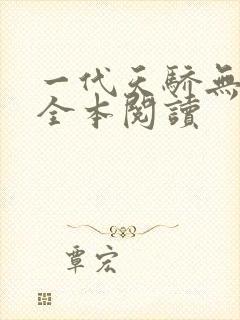 一代天驕無
全本閱讀
覃宏